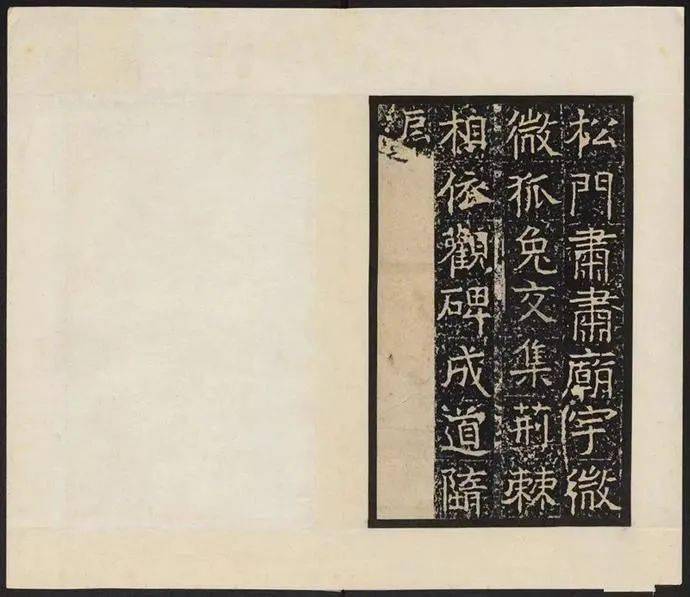 松門肅肅廟宇微
微狐兔交集荊棘
相依觀碑成道隨